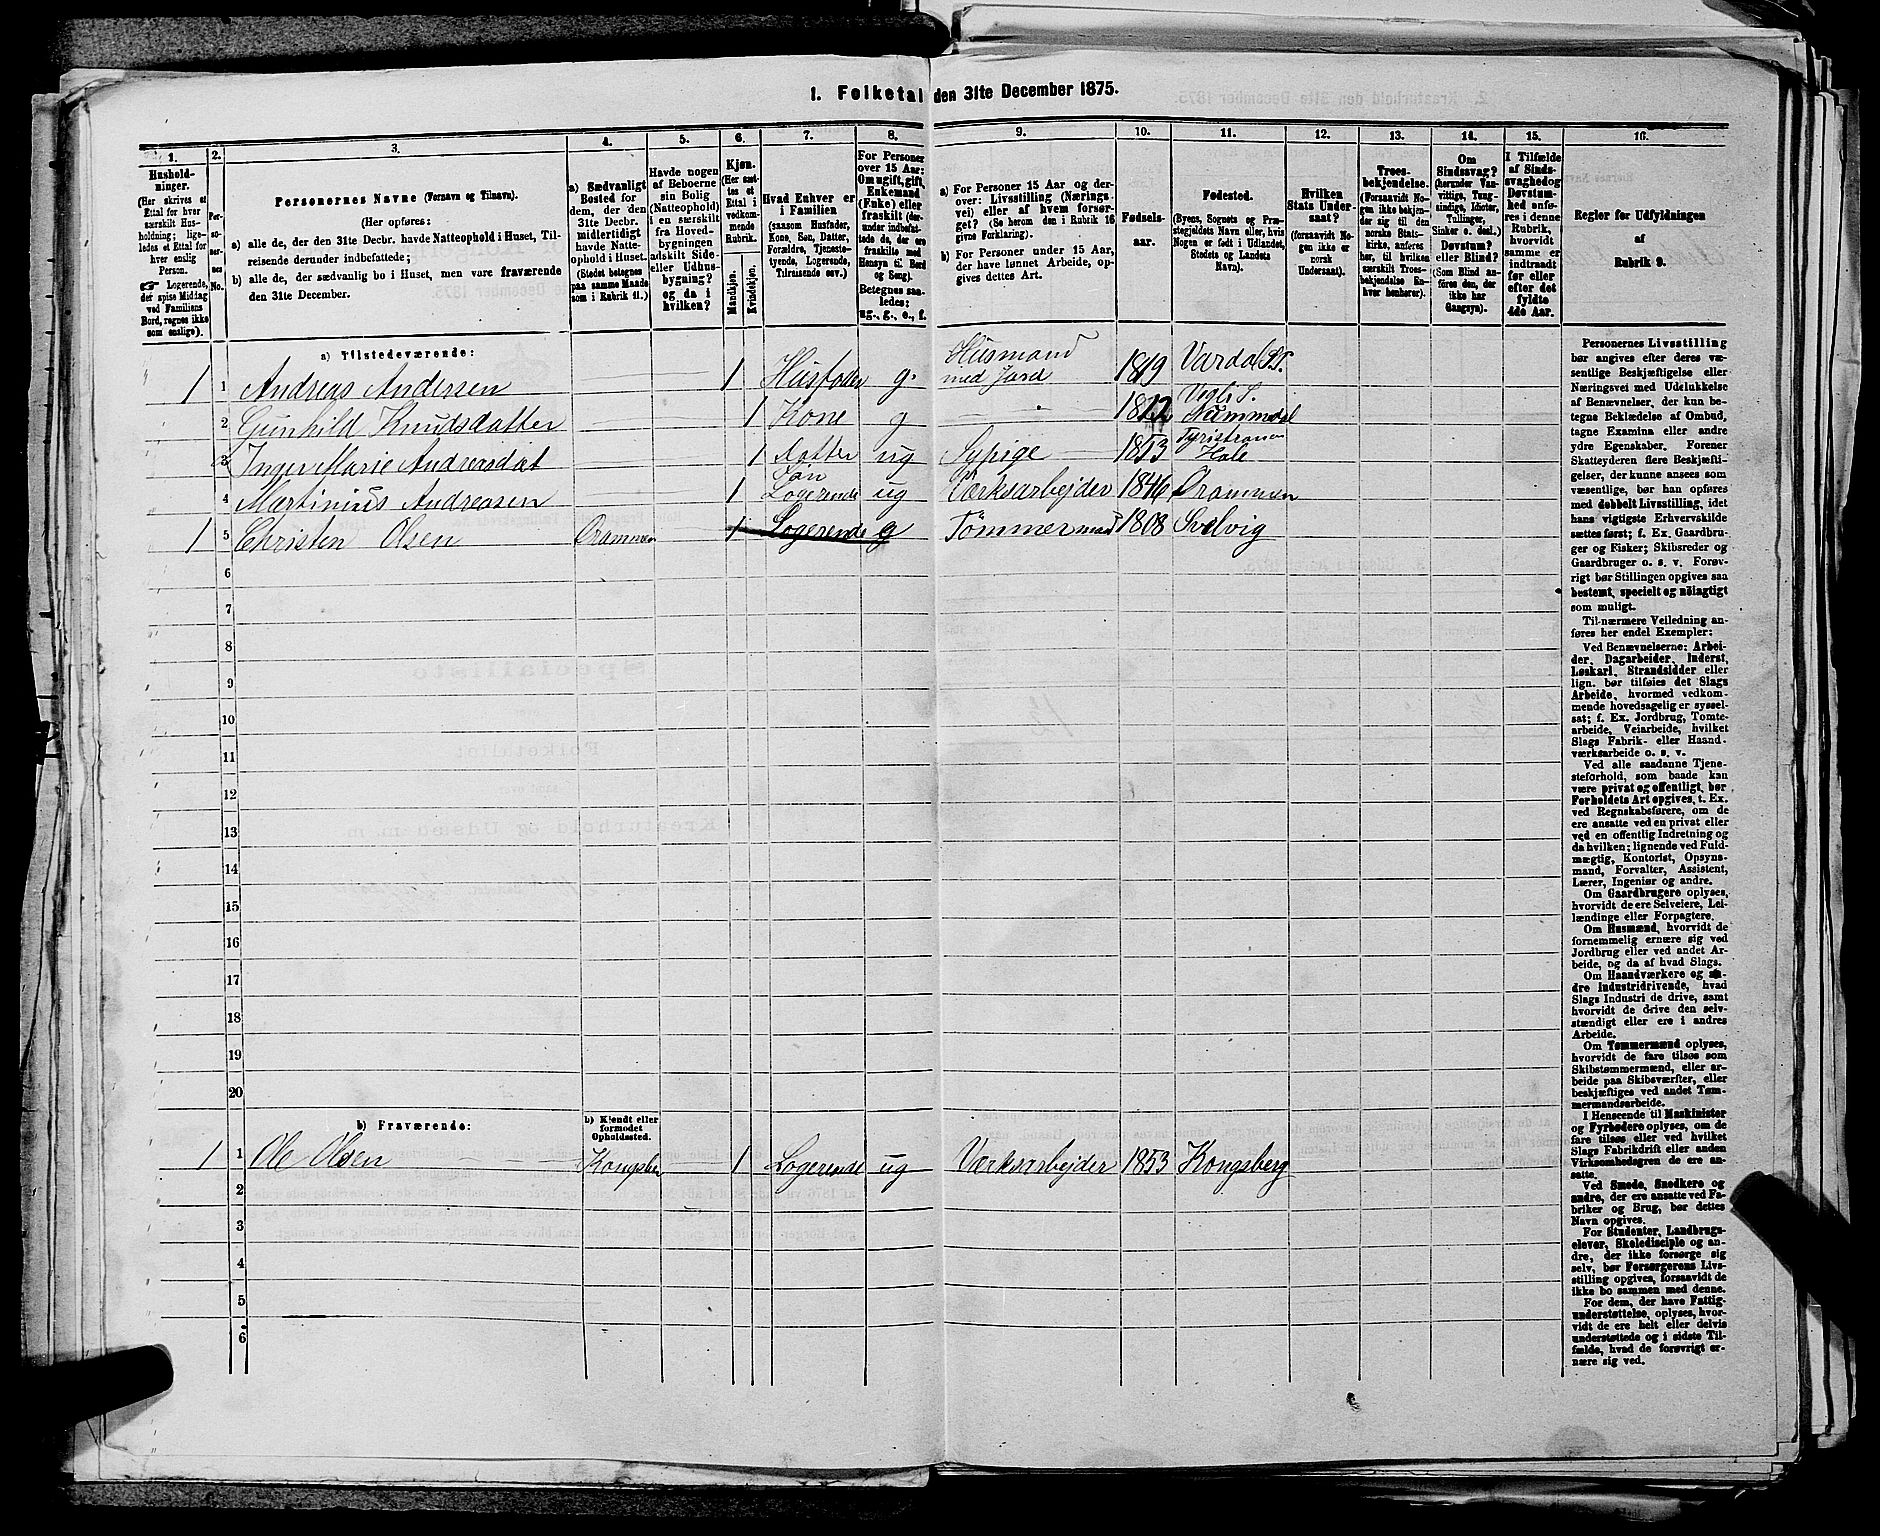 1. Folketal den 31te December 1875.
1. 2. 3. 4. 5. 6. 7. 8. 9. 10. 11. 12. 13. 14. 15. 16.
Hushold-
ninger.
(Her skrives et
Ettal for hver
særskilt Hus-
holdning; lige-
ledes et Ettal for
hver enslig
Person.
☞ Logerende,
der spise Middag
ved Familiens
Bord, regnes ikke
som enslige).
Per-
so-
ner-
nes
No.
Personernes Navne (Fornavn og Tilnavn).
(Her opføres:
a) alle de, der den 31te Decbr. havde Natteophold i Huset, Til-
reisende derunder indbefattede;
b) alle de, der sædvanlig bo i Huset, men vare fraværende
den 31te December.
a) Sædvanligt
Bosted for
dem, der den
31te Decbr.
midlertidigt
havde Natte-
ophold i Huset.
(Stedet betegnes
paa samme Maade
som i Rubrik 11.)
Havde nogen
af Beboerne
sin Bolig
(Natteophold)
i en særskilt
fra Hoved-
bygningen
adskilt Side-
eller Udhus-
bygning?
og da i
hvilken?
Kjøn.
(Her sæt-
tes et
Ettal i
vedkom-
mende
Rubrik.
Mandkjøn.
Kvindekjøn.
Hvad Enhver er
i Familien
(saasom Husfader,
Kone, Søn, Datter,
Forældre, Tjeneste-
tyende, Logerende,
Tilreisende osv.)
For Personer
over 15 Aar:
Om ugift, gift,
Enkemand
(Enke) eller
fraskilt (der-
under indbefat-
tede de, der ere
fraskilte med
Hensyn til Bord
og Seng).
Betegnes saa-
ledes:
ug., g., e., f.
a) For Personer 15 Aar og der-
over: Livsstilling (Nærings-
vei) eller af hvem forsør-
get? (Se herom den i Rubrik 16
givne Forklaring).
b) For Personer under 15 Aar,
der have lønnet Arbeide, op-
gives dettes Art.
Fødsels-
aar.
Fødested.
(Byens, Sognets og Præ-
stegjeldets Navn eller, hvis
Nogen er født i Udlandet,
Stedets og Landets
Navn).
Hvilken
Stats Under-
saat?
(forsaavidt No-
gen ikke er
norsk
Undersaat).
Troes-
bekjendelse.
(Forsaavidt No-
gen ikke bekjen-
der sig til den
norske Stats-
kirke, anføres
her, til hvilken
særskilt Troes-
bekjendelse En-
hver henhører).
Om
Sindssvag?
(herunder Van-
vittige, Idioter,
Tullinger,
Sinker o. desl.)
Døvstum?
eller Blind?
(Som Blind an-
føres den, der
ikke har
Gangsyn).
I Tilfælde
af Sinds-
svaghed og
Døvstum-
hed anfø-
res i denne
Rubrik,
hvorvidt
samme er
indtraadt
før eller
efter det
fyldte
4de Aar.
Regler for Udfyldningen
af
Rubrik 9.
a) Tilstedeværende:
1 1 Andreas Andersen 1 Husfader g. Husmand med Jord 1819 Vardal Pr.
2 Gunhild Knudsdatter 1 Kone g Nummedal
3 Inger Marie Andreasdat 1 Datter ug Sypige 1853 Tyristranen Hole
4 Martinius Andreasen 1 Søn Logerende ug Værksarbejder 1846 Drammen
1 5 Christen Olsen Drammen 1 Logerende g Tømmermand 1808 Svelvig
6
7
8
9
10
11
12
13
14
15
16
17
18
19
20
b) Fraværende:
b) Kjendt eller
formodet
Opholdssted.
1 1 Ole Olsen Kongsber 1 Logerende ug Værksarbejder 1853 Kongsberg
2
3
4
5
6
Personernes Livsstilling
bør angives efter deres væ-
sentlige Beskjæftigelse eller
Næringsvei med Udelukkelse
af Benævnelser, der kun be-
tegne Beklædelse af Ombud,
tagne Examina eller andre
ydre Egenskaber. Forener
Skatteyderen flere Beskjæfti-
gelser, der kunne ansees som
væsentlige, bør han opføres
med dobbelt Livsstilling, idet
hans vigtigste Erhvervskilde
sættes først; f. Ex. Gaardbru-
ger og Fisker; Skibsreder og
Gaardbruger o. s. v. Forøv-
rigt bør Stillingen opgives saa
bestemt, specielt og nøiagtigt
som muligt.
Til nærmere Veiledning an-
føres her endel Exempler:
Ved Benævnelserne: Arbei-
der, Dagarbeider, Inderst,
Løskarl, Strandsidder eller
lign. bør tilføies det Slags
Arbeide, hvormed vedkom-
mende hovedsagelig er syssel-
sat; f. Ex. Jordbrug, Tomte-
arbeide, Veiarbeide, hvilket
Slags Fabrik- eller Haand-
værksarbeide o. s. v.
Ved alle saadanne Tjene-
steforhold, som baade kan
være privat og offentligt, bør
Forholdets Art opgives, t. Ex.
ved Regnskabsførere, om de
ere ansatte ved en privat eller
ved en offentlig Indretning og
da hvilken; lignende ved Fuld-
mægtig, Kontorist, Opsyns-
mand, Forvalter, Assistent,
Lærer, Ingeniør og andre.
Om Gaardbrugere oplyses,
hvorvidt de ere Selveiere, Lei-
lændinge eller Forpagtere.
Om Husmænd, hvorvidt de
fornemmelig ernære sig ved
Jordbrug eller ved andet Ar-
beide, og da af hvad Slags.
Om Haandværkere og an-
dre Industridrivende, hvad
Slags Industri de drive, samt
hvorvidt de drive den selv-
stændigt eller ere i andres
Arbeide.
Om Tømmermænd oplyses,
hvorvidt de fare tilsøs som
Skibstømmermænd, eller ar-
beide paa Skibsværfter, eller
beskjæftiges ved andet Tøm-
mermandsarbeide.
I Henseende til Maskinister
og Fyrbødere oplyses, om de
fare tilsøs eller ved hvilket
Slags Fabrikdrift eller anden
Virksomhedsgren de ere an-
satte.
Ved Smede, Snedkere og
andre, der ere ansatte ved Fa-
briker og Brug, bør dettes
Navn opgives.
For Studenter, Landbrugs-
elever, Skoledisciple og an-
dre, der ikke forsørge sig
selv, bør Forsørgerens Livs-
stilling opgives, forsaavidt de
ikke bo sammen med denne.
For dem, der have Fattig-
understøttelse, oplyses, hvor-
vidt de ere helt eller delvis
understøttede og i sidste Til-
fælde, hvad de forøvrigt er-
nære sig ved.